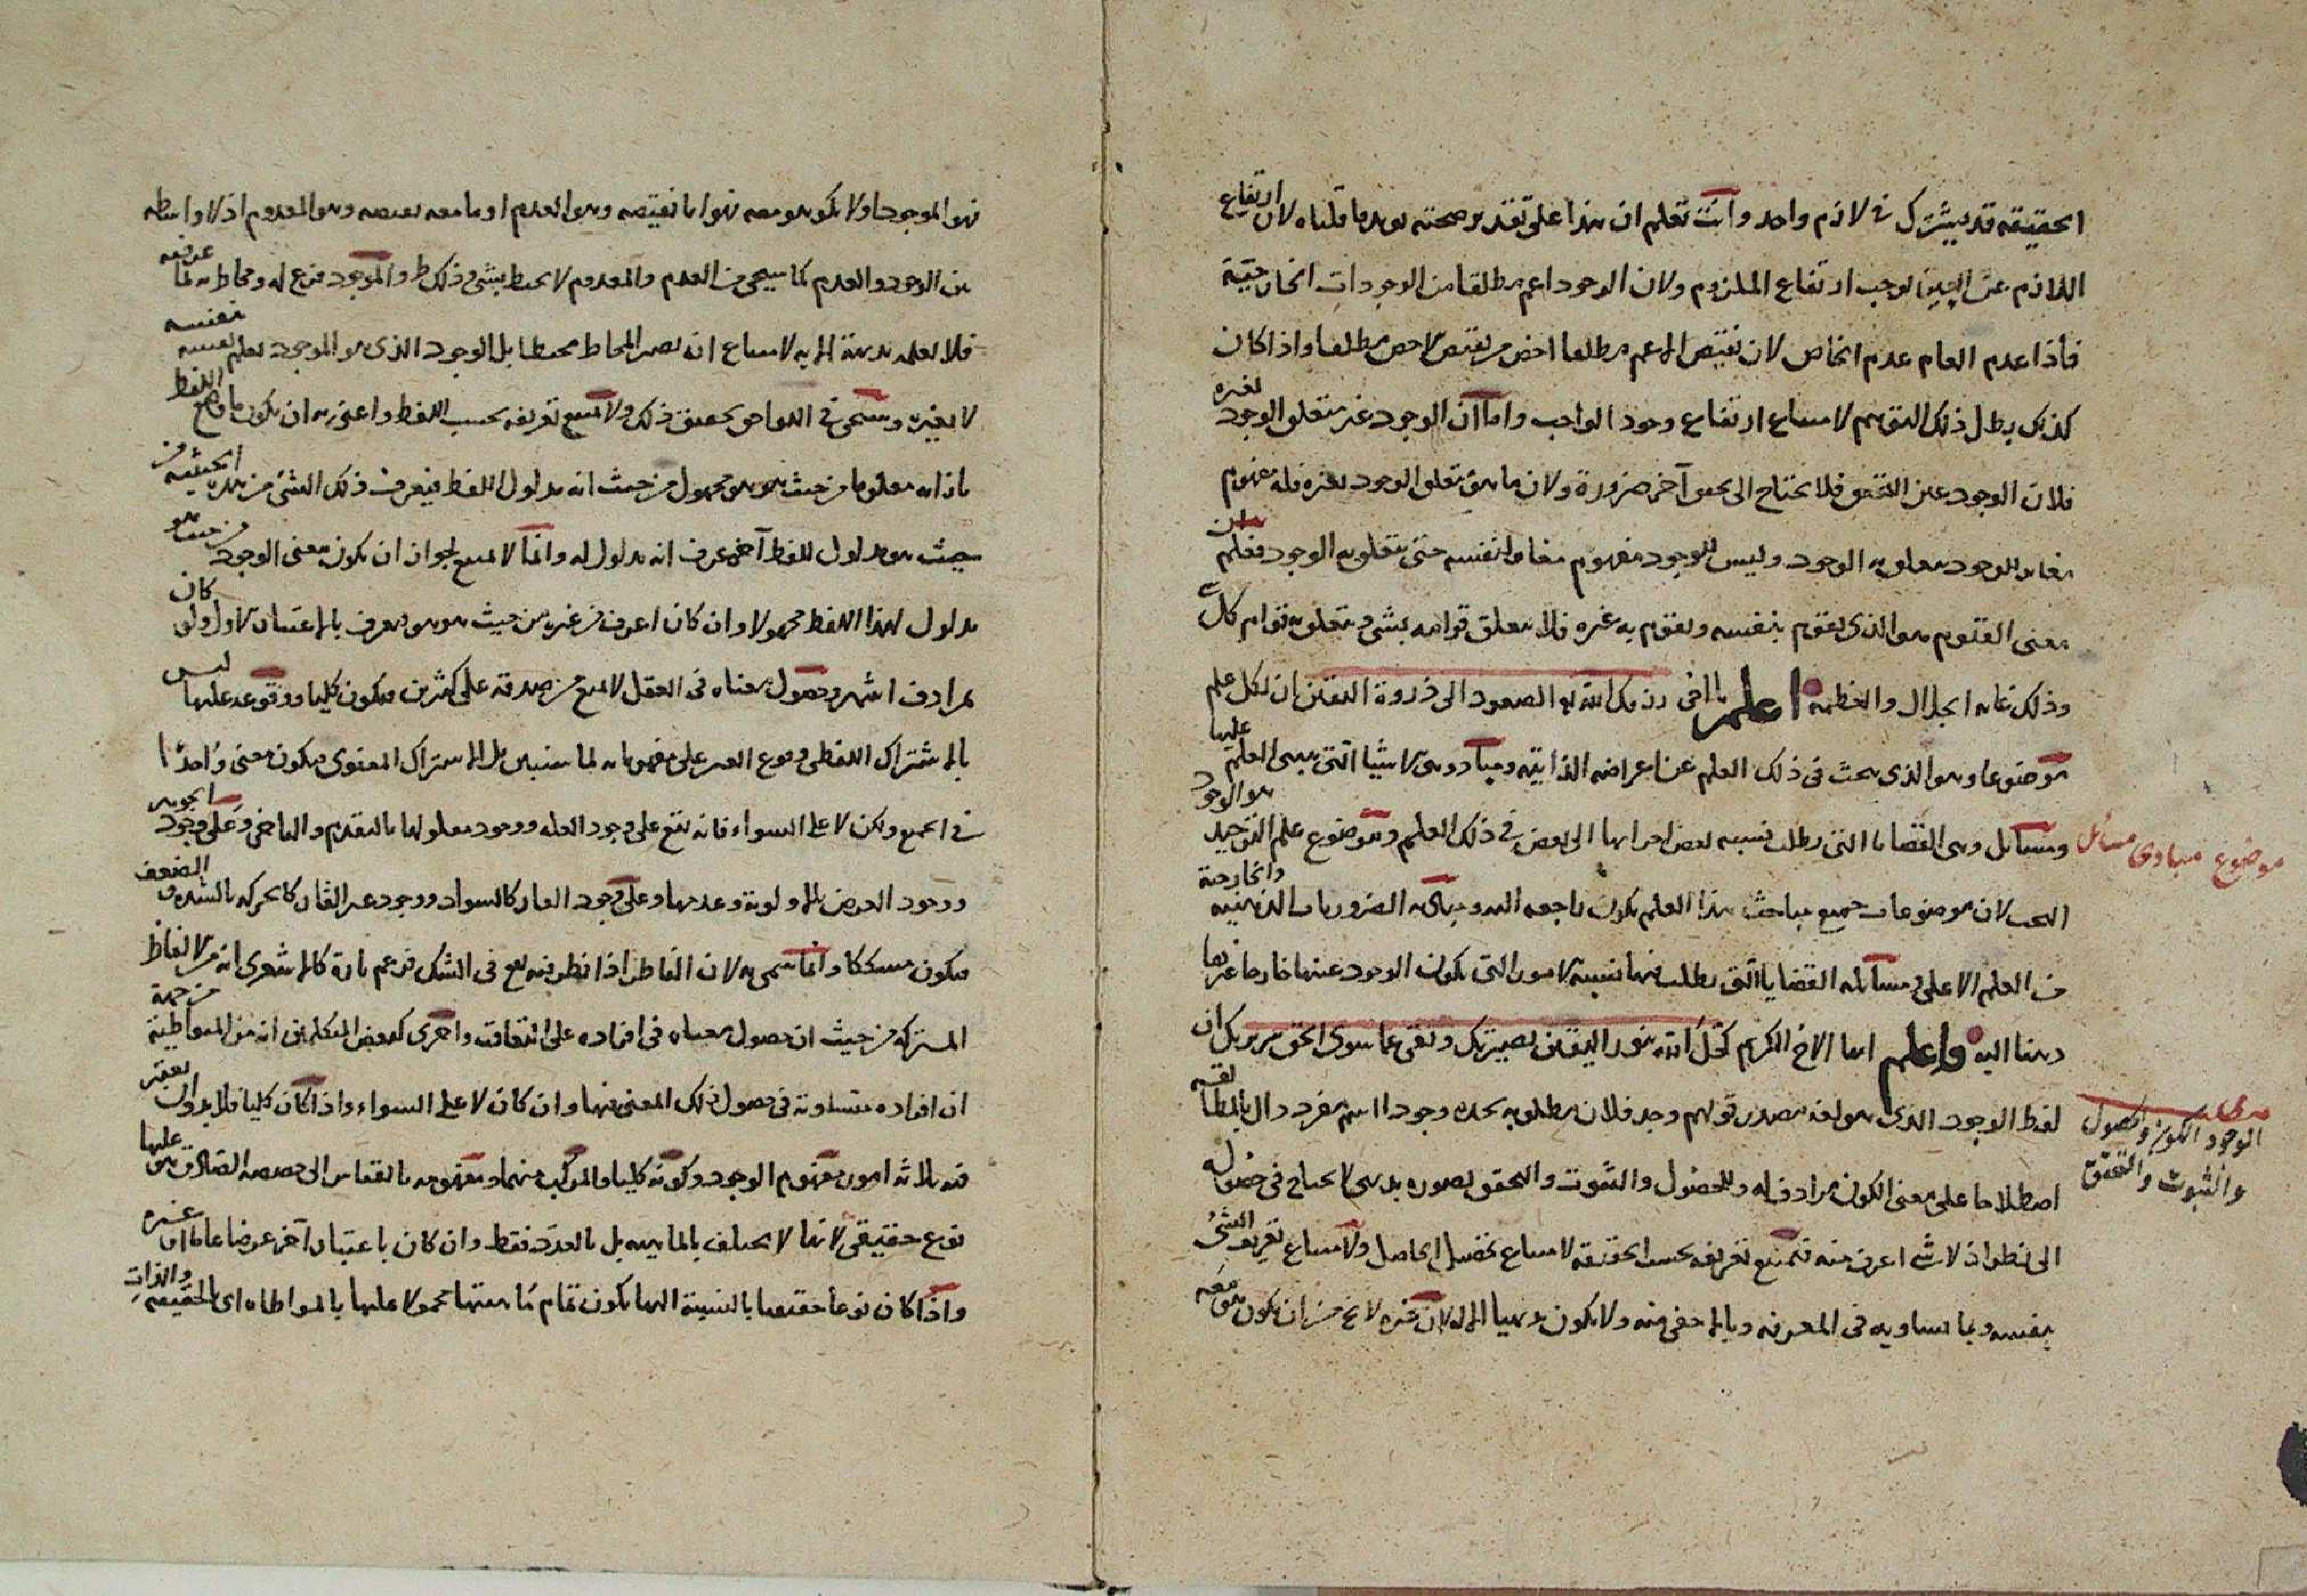 الحقيقة قد يشترك في لازم واحد وانت تعلم ان هذا على تقدير صحته يويد ما قلناه لان ارتفاع
اللازم عن البين يوجب ارتفاع الملزوم ولان الوجود اعم مطلقا من الوجودات الخارجية
فاذا عدم العام عدم الخاص لان نقيض الاعم مطلقا اخص من نقيض الاخص مطلقا واذا كان
كذلك بطل ذلك التوهم لامتناع ارتفاع وجود الواجب واما ان الوجود غير متعلق الوجود لغيره
فلان الوجود عين التحقق فلا يحتاج الى محقق آخر ضرورة ولان ما هو متعلق الوجود بغيره فله مفهوم
مغاير للوجود يتعلق به الوجود وليس للوجود مفهوم مغاير لنفسه حتى يتعلق به الوجود فعلم من
معنى القيوم هو الذي يقوم بنفسه ويقوم به غيره فلا يتعلق قوامه بشئ ويتعلق به قوام كل شئ
وذلك غاية الجلال والعظمة اعلم يا اخى رزقك الله الصعود الى ذروة اليقين ان لكل علم
موضوعا وهو الذى يبحث فى ذلك العلم عن اعراضه الذاتية ومبادى وهى الاشيا التى يبنى العلم عليها
ومسائل وهى القضايا التى يطلب نسبة بعض اجزائها الى بعض فى ذلك العلم وموضوع علم التوحيد هو الوجود
موضوع مبادى مسائل
البحت لان موضوعات جميع مباحث هذا العلم يكون راجعه اليه ومباديه الضروريات الذهنيه والخارجية
من العلم الاعلى ومسائله القضايا التى يطلب فيها نسبة الامور التى يكون الوجود عنها خارجا عن
هنا اليه واعلم ايها الاخ الكريم كحل الله بنور اليقين بصيرتك ونفى عما سوى الحق سريرتك ان
لفظ الوجود الذى هو لغة مصدر قولهم وجد فلان مطلوبه يجده وجودا اسم مفرد دال بالمطابقه
الوجود الكون والحصول
والثبوت والتحقق
اصطلاحا على معنى الكون مرادف له وللحصول والثبوت والتحقق تصوره بديهى لا يحتاج فى حصوله
الى نظر اذ لا شئ اعرف منه فيمتنع تعريفه بحسب الحقيقة لامتناع تحصيل الحاصل ولامتناع تعريف الشئ
بنفسه وبما يساويه فى المعرفة وبالاخفى منه ولا يكون بديهيا الا له لان غيره لا يخ من ان يكون هو معه
فهو الموجود او لا يكون هو معه فهو اما نقيضه وهو العدم او ما معه نقيضه وهو المعدوم اذ لا واسطه
بين الوجود والعدم كما سيجئ من العدم والمعدوم لا يحيط بشئ وذلك ظ والموجود فرع له ومحاط به لما عرفته
فلا يعلمه بديهة الا به لامتناع ان يصير المحاط محيطا بل الوجود الذى هو الموجود يعلم نفسه بنفسه
لا بغيره وسيجئ فى اللواحق تحقيق ذلك ولا يمتنع تعريفه بحسب اللفظ واعنى به ان يكون ما وضع اللفظ
بازائه معلوما من حيث هو هو مجهول من حيث انه مدلول اللفظ فيعرف ذلك الشئ من هذه الحيثيه من
حيث هو مدلول للفظ آخر عرف انه مدلول له وانما لا يمتنع لجواز ان يكون معنى الوجود من حيث هو
مدلول لهذا اللفظ مجهولا وان كان اعرف من غيره من حيث هو هو ويعرف بالاعتبار الاول ولو كان
بمرادف اشهر وحصول معناه فى العقل لا يمنع من صدقه على كثيرين فيكون كليا ووقوعه عليها ليس
بالاشتراك اللفظى وهو وقوع العين على مفهوماته لما سنبين بل بالاشتراك المعنوى فيكون معنى واحدا
فى الجميع ولكن لا على السواء فانه يقع على وجود العله ووجود معلولها بالتقدم والتاخر وعلى وجود الجوهر
ووجود العرض بالاولوية وعدمها وعلى وجود القار كالسواد ووجود غير القار كالحركه بالشده والضعف
فيكون مشككا وانما سمى به لان الناظر اذا نظر فيه يقع فى الشك فزعم تارة كالاشعرى انه من الالفاظ
المشتركه من حيث ان حصول معناه فى افراده على التفاوت واخرى كبعض المتكلمين انه من المتواطئة من جهة
ان افراده متساوية فى حصول ذلك المعنى فيها وان كان لا على السواء واذا كان كليا فلا بد وان يعتبر
فيه ثلاثه امور مفهوم الوجود وكونه كليا والمركب منهما ومفهومه بالقياس الى حصصه الصادق هو عليها
نوع حقيقى لانها لا يختلف بالماهيه بل بالعدد فقط وان كان باعتبار آخر عرضا عاما او غيره
واذا كان نوعا حقيقيا بالنسبة اليها يكون تمام ماهيتها محمولا عليها بالمواطاه اى بالحقيقه والذات